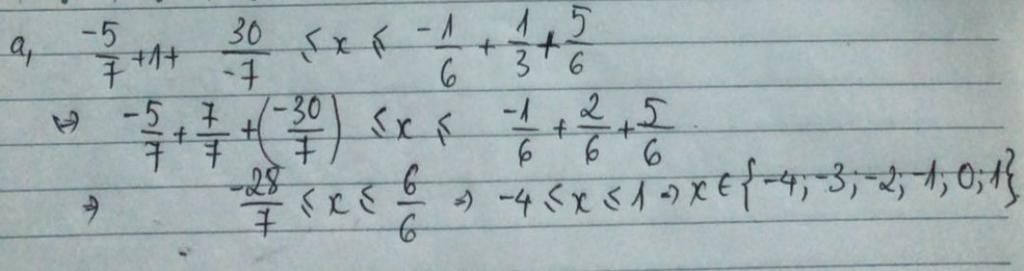 a, -5/7 + 1 + 30/-7 ≤ x ≤ -1/6 + 1/3 + 5/6
⇒ -5/7 + 7/7 + (-30/7) ≤ x ≤ -1/6 + 2/6 + 5/6
⇒ -28/7 ≤ x ≤ 6/6 ⇒ -4 ≤ x ≤ 1 ⇒ x ∈ {-4; -3; -2; -1; 0; 1}